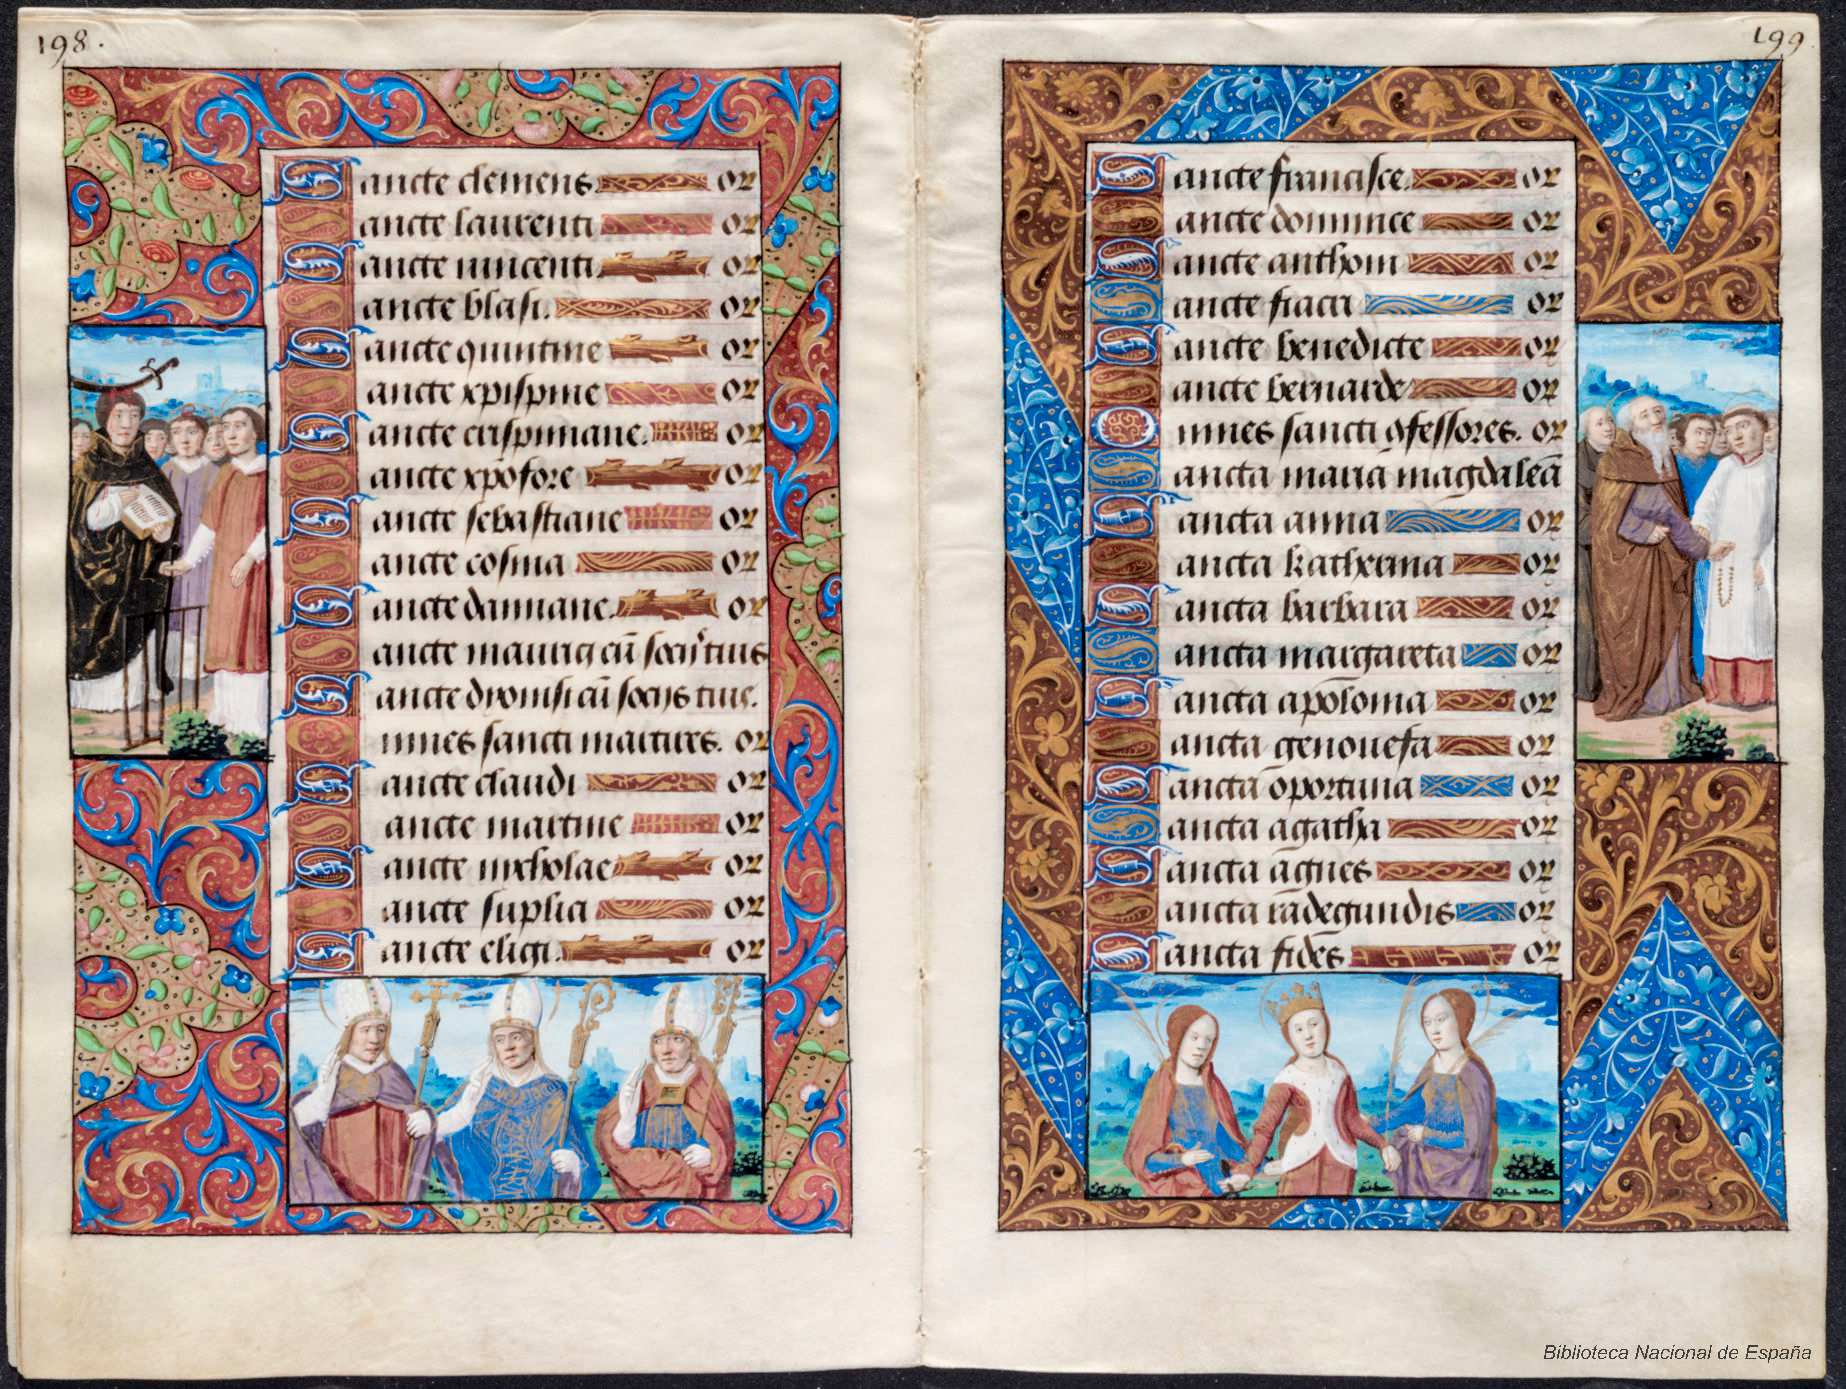 198.
Sancte clemens. or
Sancte laurenti or
Sancte vincenti. or
Sancte blasi. or
Sancte quintine or
Sancte xpispine or
Sancte crispiniane. or
Sancte xp̄ofore or
Sancte sebastiane or
Sancte cosma or
Sancte damiane. or
Sancte maurici cū socijs tuis
Sancte dyonisi cū socijs tuis.
Omnes sancti martires. or
Sancte claudi or
Sancte martine or
Sancte nicholae or
Sancte suplici or
Sancte eligi. or
199
Sancte francisce. or
Sancte dominice or
Sancte anthoni or
Sancte fiacri or
Sancte benedicte or
Sancte bernarde or
Omnes sancti ꝯfessores. or
Sancta maria magdaleā
Sancta anna or
Sancta katherina or
Sancta barbara or
Sancta margareta or
Sancta apolonia or
Sancta genouefa or
Sancta oportuna or
Sancta agatha or
Sancta agnes or
Sancta radegundis or
Sancta fides or
Biblioteca Nacional de España